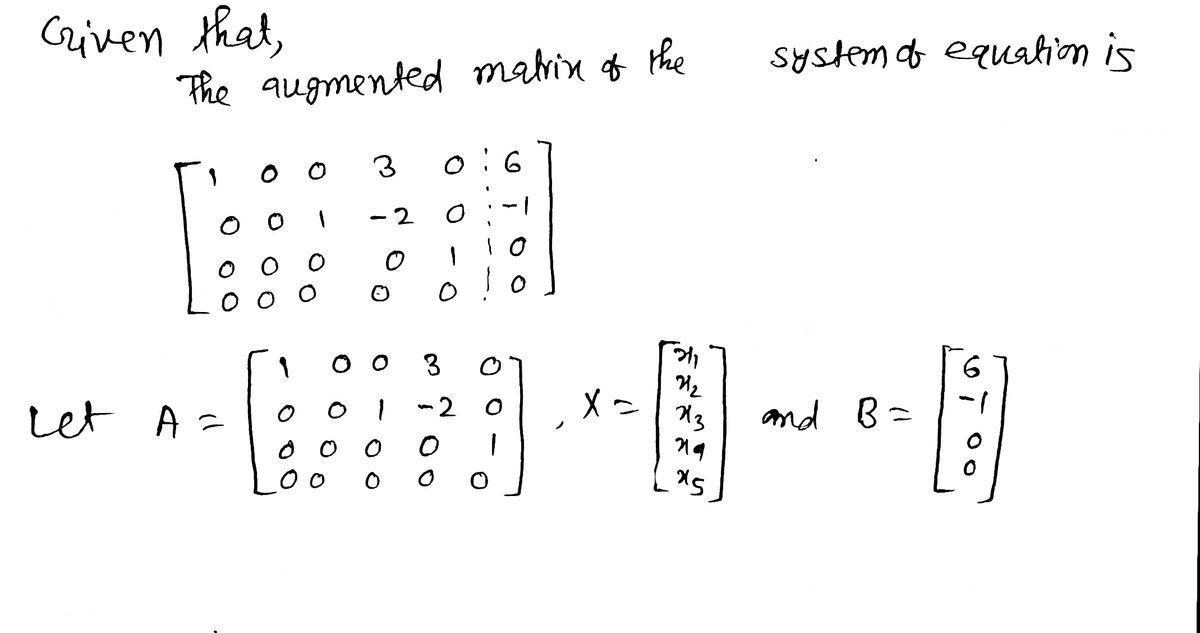 Given that,
The augmented matrix of the system of equation is
1 0 0 3 0 ⋮ 6
0 0 1 -2 0 ⋮ -1
0 0 0 0 1 ⋮ 0
0 0 0 0 0 ⋮ 0
Let A = [1 0 0 3 0; 0 0 1 -2 0; 0 0 0 0 1; 0 0 0 0 0], X = [x1; x2; x3; x4; x5] and B = [6; -1; 0; 0]